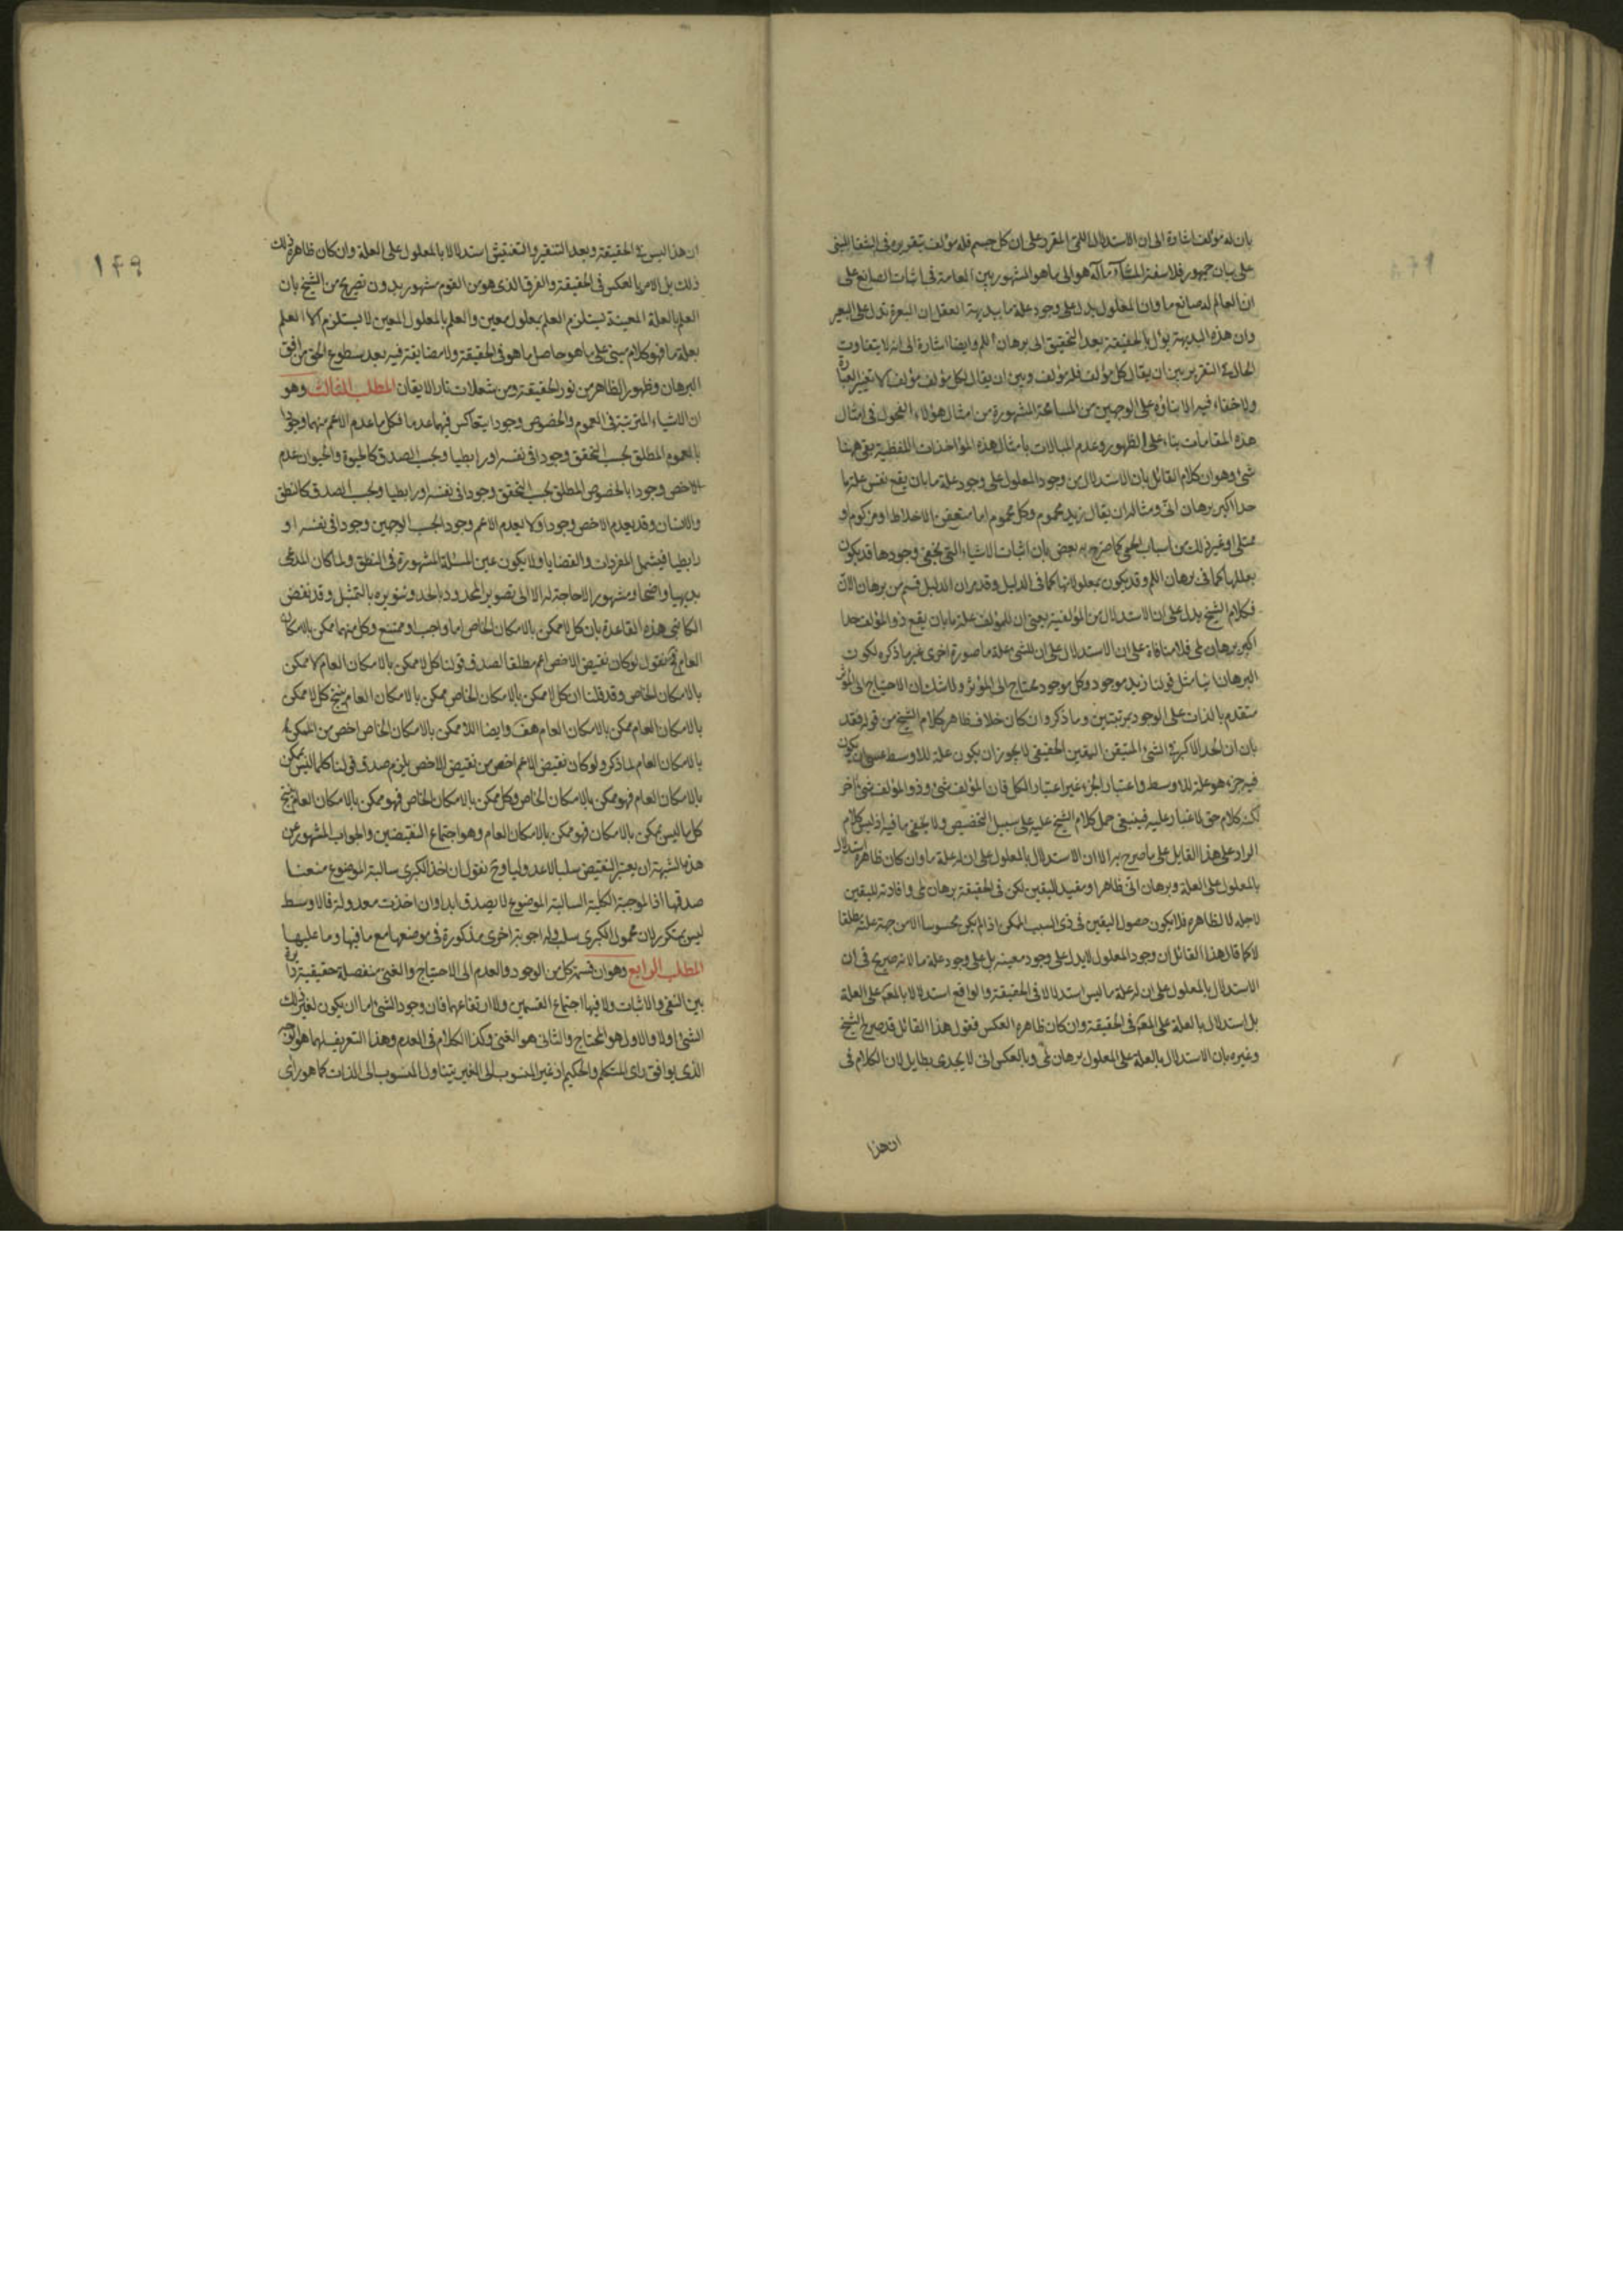 بان له مؤلف اشارة الى ان الاستدلال اللمى المقرر على ان كل جسم فله مؤلف بتقريره فى الشفا المبنى
على بيان جمهور فلاسفة المشآء مآله هو الى ما هو المشهور بين العامة فى اثبات الصانع على
ان العالم له صانع ما وان المعلول يدل على وجود علة ما ببديهة العقل ان البعرة تدل على البعير
وان هذه البديهة يؤل بالحقيقة بعد التحقيق الى برهان اللم وايضا اشارة الى انه لا يتفاوت
الحال فى التقرير بين ان يقال كل مؤلف فله مؤلف وبين ان يقال لكل مؤلف مؤلف الا تغيير العبارة
ولا خفاء فيه الا بناؤه على الوجهين من المسامحة المشهورة من امثال هؤلاء الفحول فى امثال
هذه المقامات بناء على الظهور وعدم المبالات بامثال هذه المؤاخذات اللفظية بقى ههنا
شئ وهو ان كلام القائل بان الاستدلال من وجود المعلول على وجود علة ما بان يقع نفس علة ما
حدا اكبر برهان انّى ومثاله ان يقال زيد محموم وكل محموم اما متعفن الاخلاط او مزكوم او
ممتلى او غير ذلك من اسباب الحمى كما صرح به بعض بان اثبات الاشياء التى يخفى وجودها قد يكون
بعللها كما فى برهان اللم وقد يكون بمعلولاتها كما فى الدليل وقد مر ان الدليل قسم من برهان الانّ
فكلام الشيخ يدل على ان الاستدلال من المؤلفية بمعنى ان للمؤلف علة ما بان يقع ذو المؤلف حدا
اكبر برهان لمى فلا منافاة على ان الاستدلال على ان للشئ علة ما صورة اخرى غير ما ذكره لكون
البرهان انيا مثل قولنا زيد موجود وكل موجود محتاج الى المؤثر ولا شك ان الاحتياج الى المؤثر
متقدم بالذات على الوجود بمرتبتين وما ذكر وان كان خلاف ظاهر كلام الشيخ من قوله فقد
بان ان الحد الاكبر فى الشئ المتيقن اليقين الحقيقى لا يجوز ان يكون علة للاوسط عسى ان يكون
فيه جزء هو علة للاوسط واعتبار الجزء غير اعتبار الكل فان المؤلف شئ وذو المؤلف شئ آخر
لكنه كلام حق لا غبار عليه فينبغى حمل كلام الشيخ عليه على سبيل التخصيص ولا يخفى ما فيه اذ ليس كلام
الراد على هذا القايل على ما صرح به الا ان الاستدلال بالمعلول على ان له علة ما وان كان ظاهره استدلال
بالمعلول على العلة وبرهان انّى ظاهرا ومفيد لليقين لكن فى الحقيقة برهان لمى وافادته لليقين
لاجله لا لظاهره فلا يكون حصول اليقين فى ذى السبب الممكن اذا لم يكن محسوسا الا من جهة علته مطلقا
لا كما قال هذا القائل ان وجود المعلول لا يدل على وجود معينه بل على وجود علة ما لانه صريح فى ان
الاستدلال بالمعلول على ان له علة ما ليس استدلالا فى الحقيقة والواقع استدلالا بالمعلول على العلة
بل استدلال بالعلة على المعلول فى الحقيقة وان كان ظاهره العكس فقول هذا القائل قد صرح الشيخ
وغيره بان الاستدلال بالعلة على المعلول برهان لمّى وبالعكس انى لا يجدى بطايل لان الكلام فى
ان هذا
١٤٩
ان هذا ليس فى الحقيقة وبعد التنقير والتفتيش استدلالا بالمعلول على العلة وان كان ظاهره ذلك
ذلك بل الامر بالعكس فى الحقيقة والفرق الذى هو من القوم مشهور بدون تصريح من الشيخ بان
العلم بالعلة المعينة يستلزم العلم بمعلول معين والعلم بالمعلول المعين لا يستلزم الا العلم
بعلة ما فهو كلام مبنى على ما هو حاصل ما هو فى الحقيقة ولا مضايقة فيه بعد سطوع الحق من افق
البرهان وظهور الظاهر من نور الحقيقة ومن شعلات نار الايقان المطلب الثالث وهو
ان الاشياء المترتبة فى العموم والخصوص وجودا يتعاكس فيهما عدما فكل ما عدم الاعم منهما وجودا
بالعموم المطلق بحسب التحقق وجودا فى نفسه او رابطيا وبحسب الصدق كالحيوة والحيوان عدم
الاخص وجودا بالخصوص المطلق بحسب التحقق وجودا فى نفسه او رابطيا وبحسب الصدق كالنطق
والانسان وقد يعدم الاخص وجودا ولا يعدم الاعم وجودا بحسب الوجهين وجودا فى نفسه او
رابطيا فيشمل المفردات والقضايا ولا يكون عين المسئلة المشهورة فى المنطق ولما كان المدعى
بديهيا واضحا ومشهورا لا حاجة له الا الى تصوير المحدود بالحد وتنويره بالتمثيل وقد نقض
الكاتبى هذه القاعدة بان كل لا ممكن بالامكان الخاص اما واجب او ممتنع وكل منهما ممكن بالامكان
العام فح نقول لو كان نقيض الاخص اعم مطلقا لصدق قولنا كل لا ممكن بالامكان العام لا ممكن
بالامكان الخاص وقد قلنا ان كل لا ممكن بالامكان الخاص ممكن بالامكان العام ينتج كل لا ممكن
بالامكان العام ممكن بالامكان العام هف وايضا اللا ممكن بالامكان الخاص اخص من الممكن
بالامكان العام لما ذكر ولو كان نقيض الاعم اخص من نقيض الاخص يلزم صدق قولنا كلما ليس بممكن
بالامكان العام فهو ممكن بالامكان الخاص وكل ممكن بالامكان الخاص فهو ممكن بالامكان العام ينتج
كل ما ليس بممكن بالامكان فهو ممكن بالامكان العام وهو اجتماع النقيضين والجواب المشهور عن
هذه الشبهة ان يعتبر النقيض سلبا لا عدوليا وح نقول ان اخذ الكبرى سالبة الموضوع منعنا
صدقها اذ الموجبة الكلية السالبة الموضوع لا يصدق ابدا وان اخذت معدولة فالاوسط
ليس بمتكرر لان محمول الكبرى سلبى وله اجوبة اخرى مذكورة فى موضعها مع ما فيها وما عليها
المطلب الرابع وهو ان قسمة كل من الوجود والعدم الى الاحتياج والغنى منفصلة حقيقية دائرة
بين النفى والاثبات ولا فيها اجتماع القسمين ولا ارتفاعهما فان وجود الشئ اما ان يكون لغير ذلك
الشئ اولا والاول هو المحتاج والثانى هو الغنى وكذا الكلام فى العدم وهذا التعريف لهما هو
الذى يوافق راى المتكلم والحكيم اذ غير المنسوب الى الغير يتناول المنسوب الى الذات كما هو راى